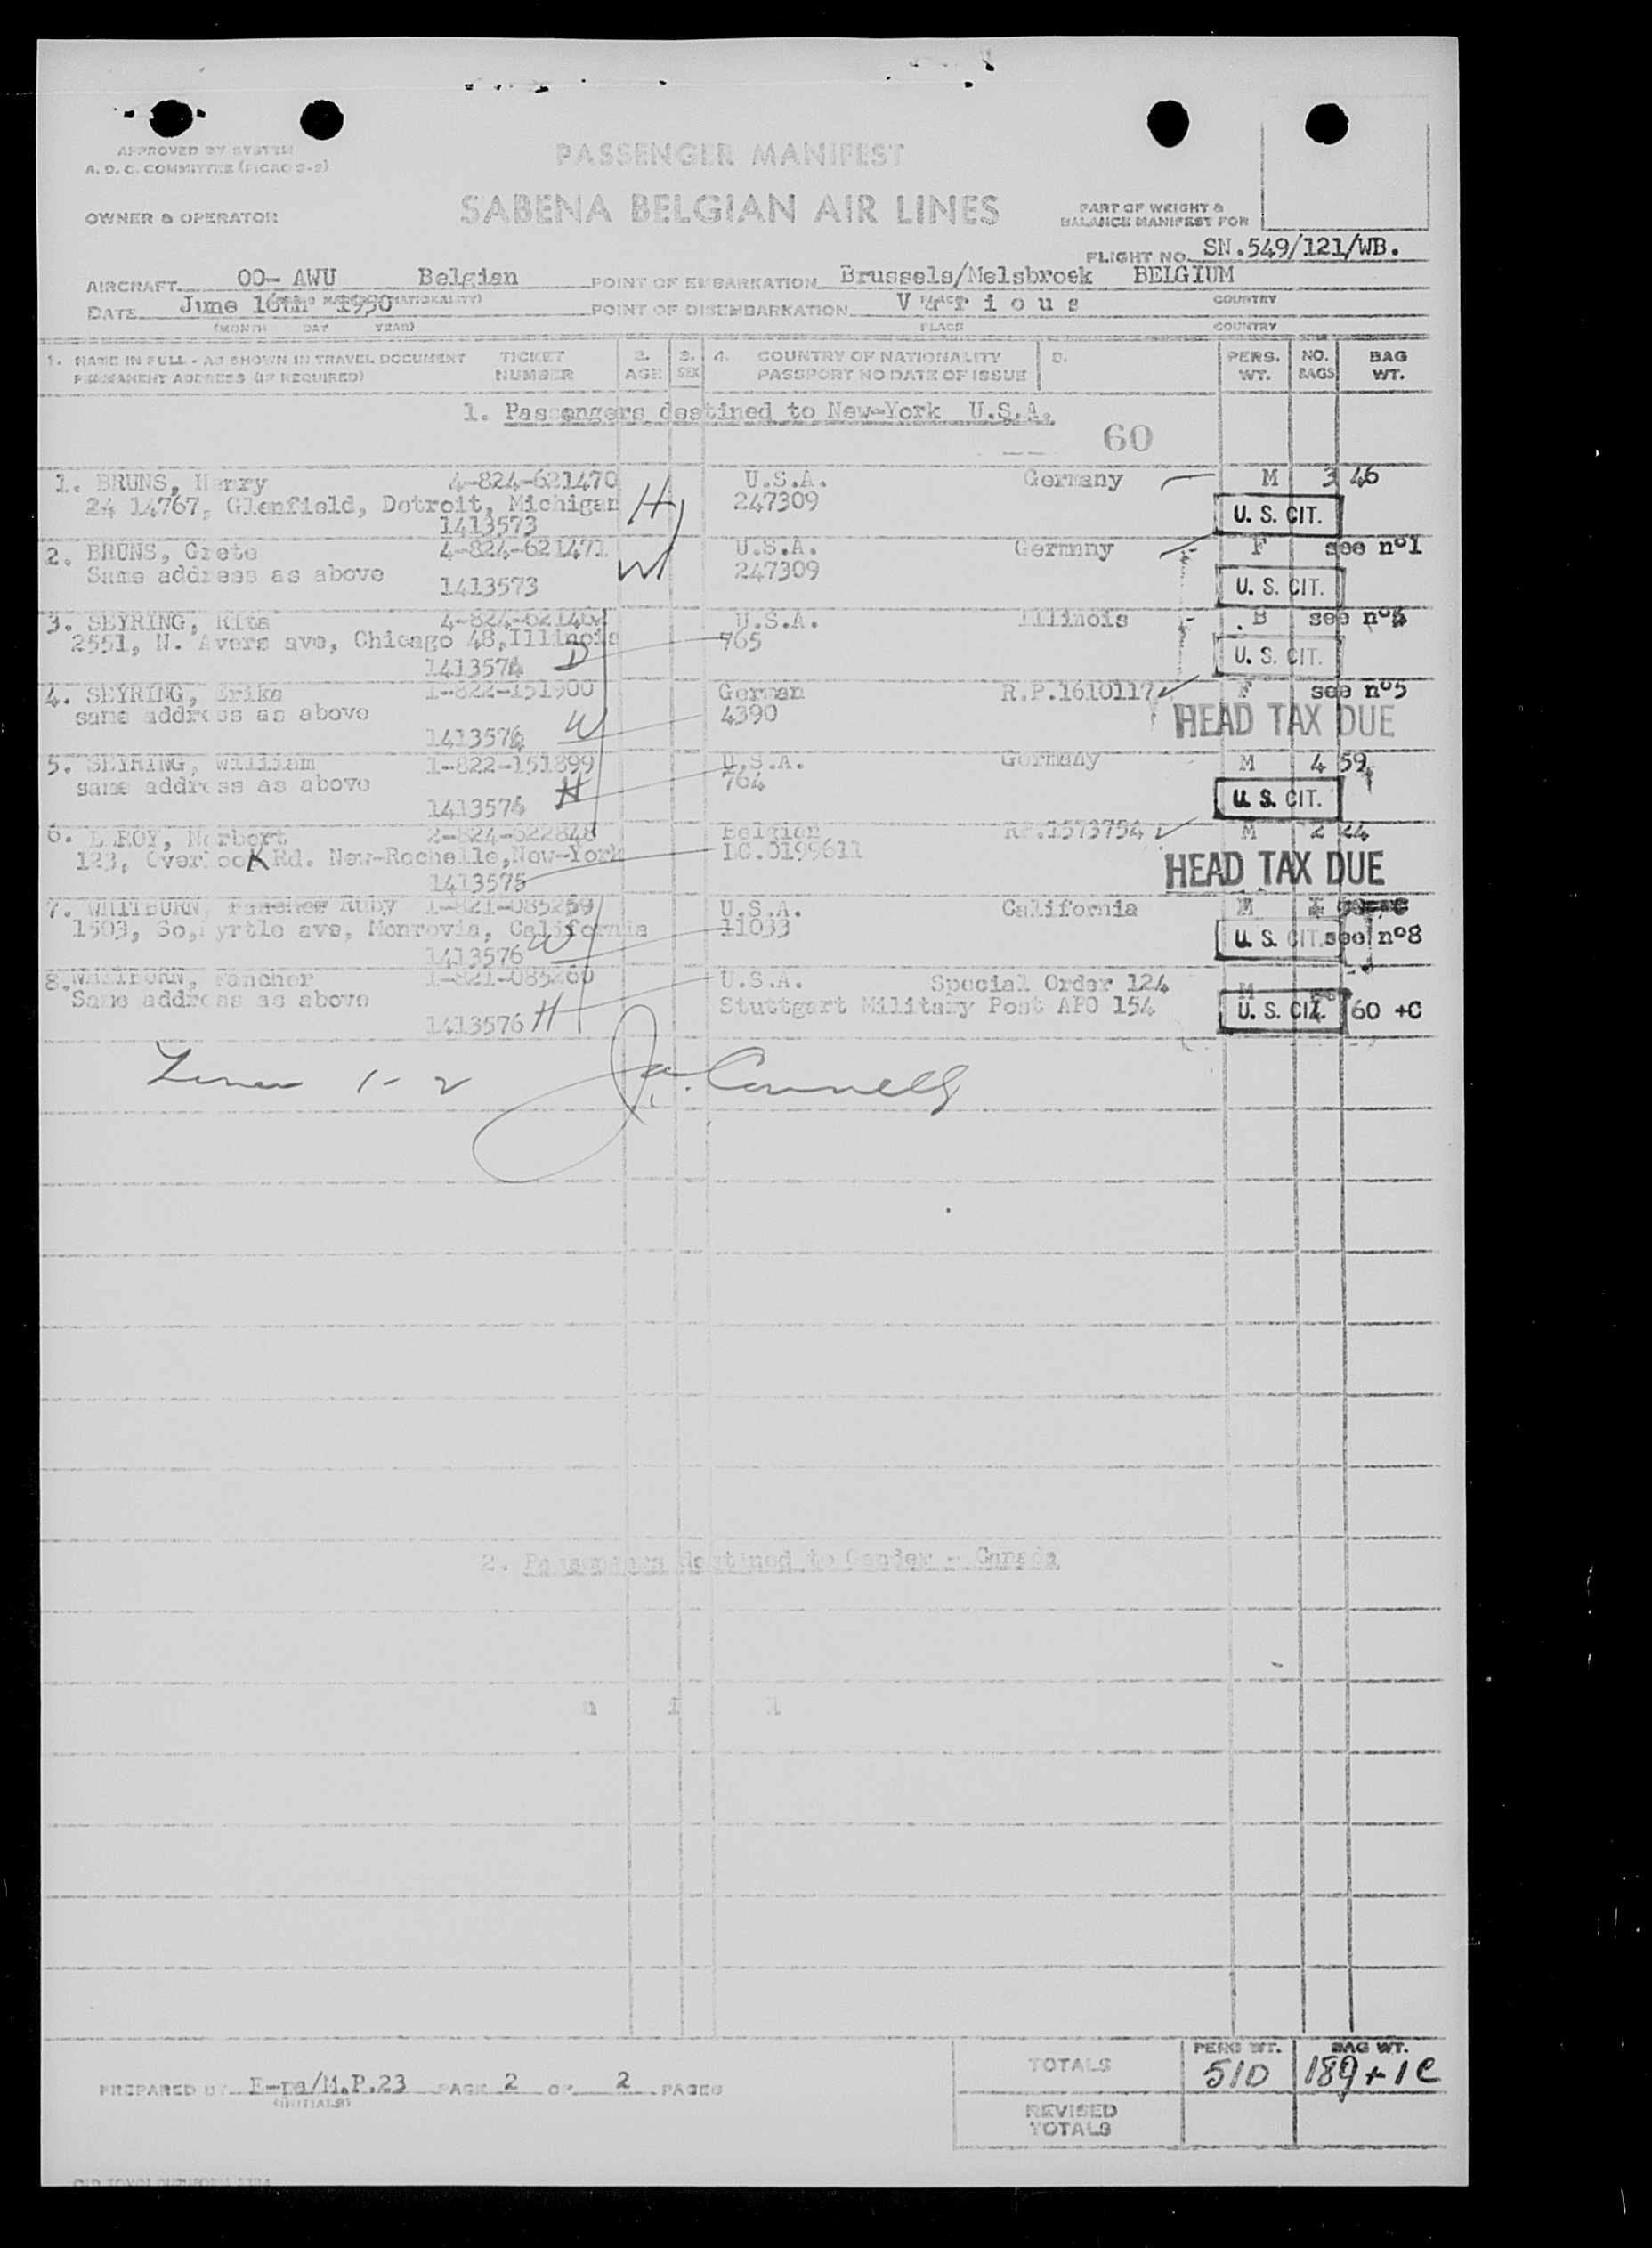 APPROVED BY SYSTEM
A. D. C. COMMITTEE (PICAO S-2)
PASSENGER MANIFEST
OWNER & OPERATOR
SABENA BELGIAN AIR LINES
PART OF WEIGHT &
BALANCE MANIFEST FOR
FLIGHT NO. SN.549/121/WB.
AIRCRAFT OO- AWU Belgian POINT OF EMBARKATION Brussels/Melsbroek BELGIUM
DATE June 16th 1950 POINT OF DISEMBARKATION V a r i o u s
PLACE COUNTRY
(MONTH DAY YEAR) PLACE COUNTRY
1. NAME IN FULL - AS SHOWN IN TRAVEL DOCUMENT TICKET 2. 3. 4. COUNTRY OF NATIONALITY 5. PERS. NO. BAG
PERMANENT ADDRESS (IF REQUIRED) NUMBER AGE SEX PASSPORT NO DATE OF ISSUE WT. BAGS WT.
1. Passengers destined to New-York U.S.A.
60
1. BRUNS, Henry 4-824-621470 U.S.A. Germany M 3 46
24 14767, Glenfield, Detroit, Michigan H 247309
1413573 U. S. CIT.
2. BRUNS, Grete 4-824-621471 U.S.A. Germany F see n°1
Same address as above W 247309
1413573 U. S. CIT.
3. SEYRING, Rita 4-824-621462 U.S.A. Illinois B see n°5
2551, N. Avers ave, Chicago 48, Illinois 765
1413574 D U. S. CIT.
4. SEYRING, Erika 1-822-151900 German R.P.1610117 F see n°5
same address as above 4390
1413574 W HEAD TAX DUE
5. SEYRING, William 1-822-151899 U.S.A. Germany M 4 59
same address as above 764
1413574 H U. S. CIT.
6. LEROY, Norbert 2-824-622848 Belgian RP.1573754 M 2 24
123, Overlook Rd. New-Rochelle, New-York I.C.0199611
1413575 HEAD TAX DUE
7. WHITBURN, Ruby 1-821-085259 U.S.A. California
1503, So, Myrtle ave, Monrovia, California 11033
1413576 W U. S. CIT. see n°8
8. WHITBURN, Fancher 1-821-085260 U.S.A. Special Order 124 M
Same address as above Stuttgart Military Post APO 154
1413576 H U. S. CIT. 60 +C
Lines 1-2 J. A. Connell
2. Passengers destined to Gander - Canada
n i l
PREPARED BY E-pa/M.P.23 PAGE 2 OF 2 PAGES
(INITIALS)
TOTALS PERS WT. 510 BAG WT. 189+1C
REVISED
TOTALS